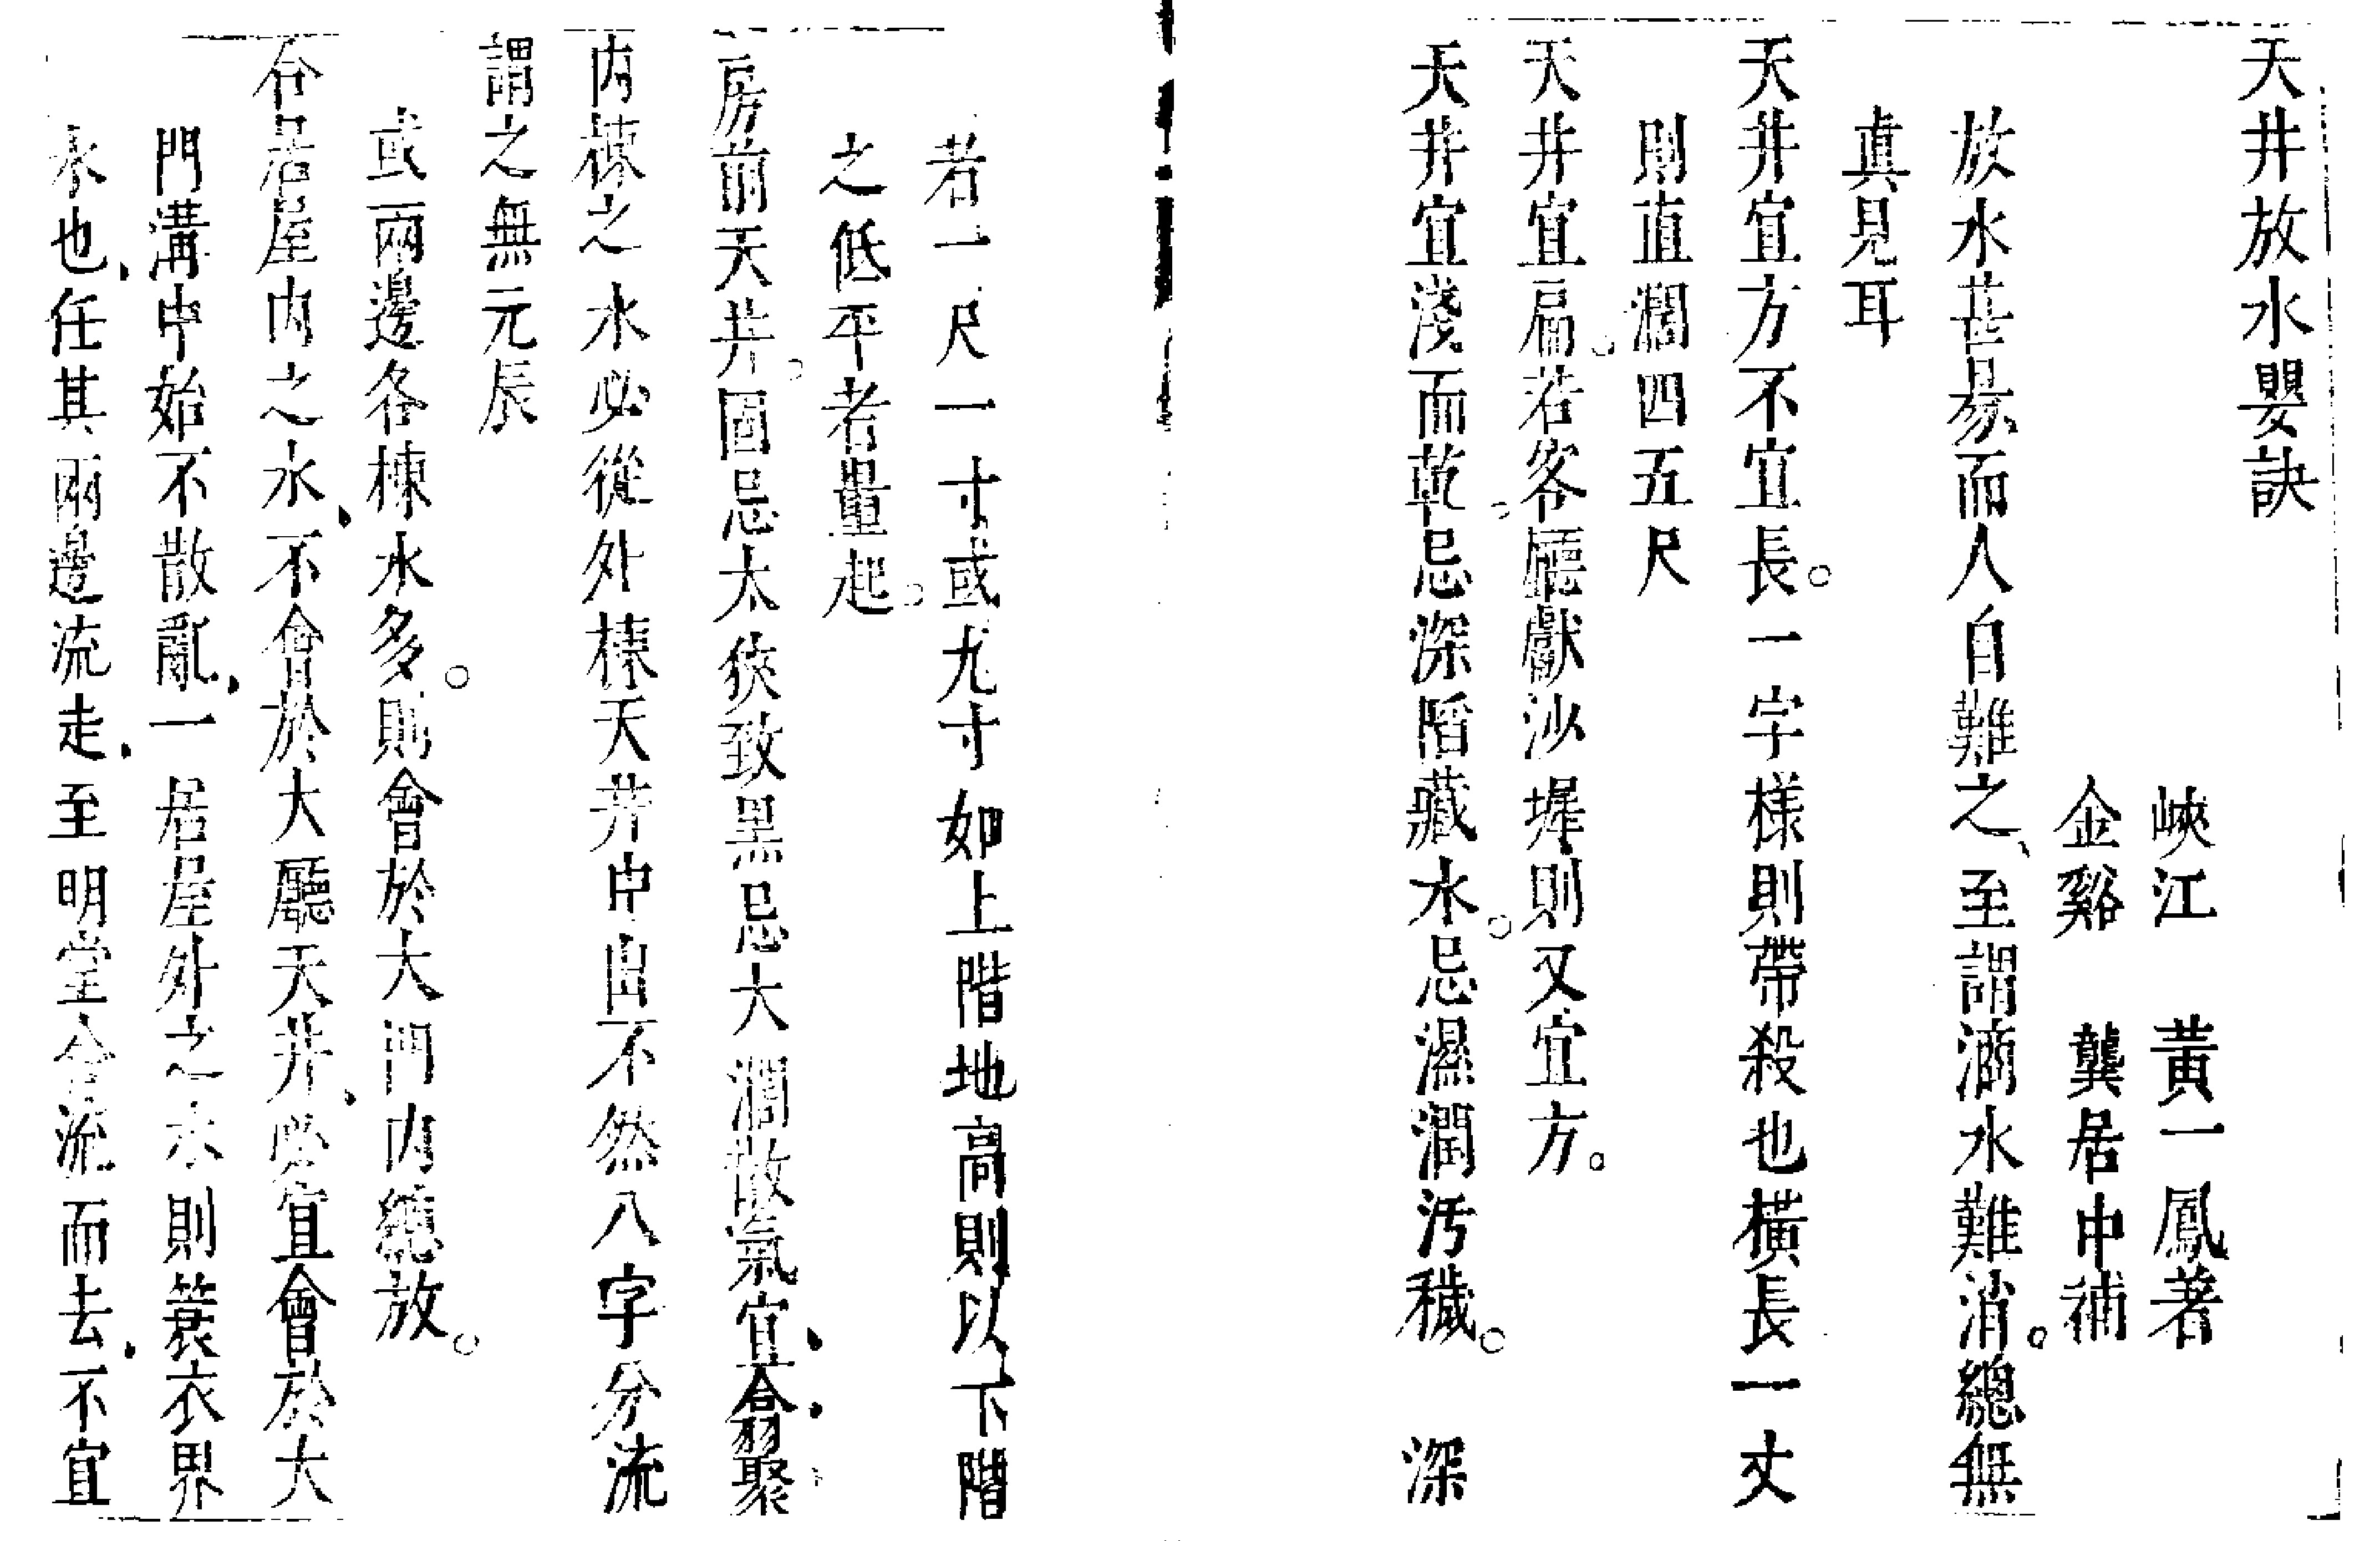 天井放水嬰訣
峽江　黃一鳳著
金谿　龔居中補
放水甚易而人自難之、至謂滴水難消。總無
真見耳
天井宜方不宜長。一字樣則帶殺也橫長一丈
則直濶四五尺
天井宜扁。若客廳獻沙墀則又宜方。
天井宜淺而乾。忌深陷藏水。忌濕潤汚穢。　深
者一尺一寸或九寸如上階地高則以下階
之低平者量起。
房前天井。固忌太狹致黑忌大濶散氣宜、合、翕聚、
內棟之水必從外棟天井中出不然八字分流
謂之無元辰
或兩邊各棟水多。則會於大門內總放。
合居屋內之水、不會於大廳天井、必宜會於大
門溝中始不散亂、一居屋外之水則簑衣界
水也、任其兩邊流走、至明堂合流而去、不宜